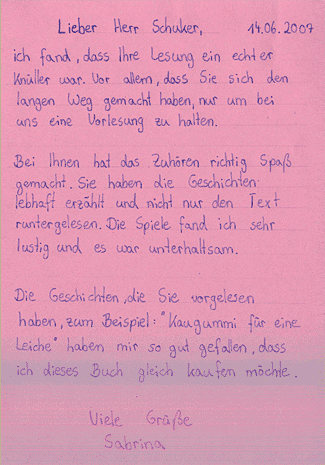 Lieber Herr Schuker, 14.06.2007
ich fand, dass Ihre Lesung ein echter
Knüller war. Vor allem, dass Sie sich den
langen Weg gemacht haben, nur um bei
uns eine Vorlesung zu halten.
Bei Ihnen hat das Zuhören richtig Spaß
gemacht. Sie haben die Geschichten
lebhaft erzählt und nicht nur den Text
runtergelesen. Die Spiele fand ich sehr
lustig und es war unterhaltsam.
Die Geschichten, die Sie vorgelesen
haben, zum Beispiel: "Kaugummi für eine
Leiche" haben mir so gut gefallen, dass
ich dieses Buch gleich kaufen möchte.
Viele Grüße
Sabrina